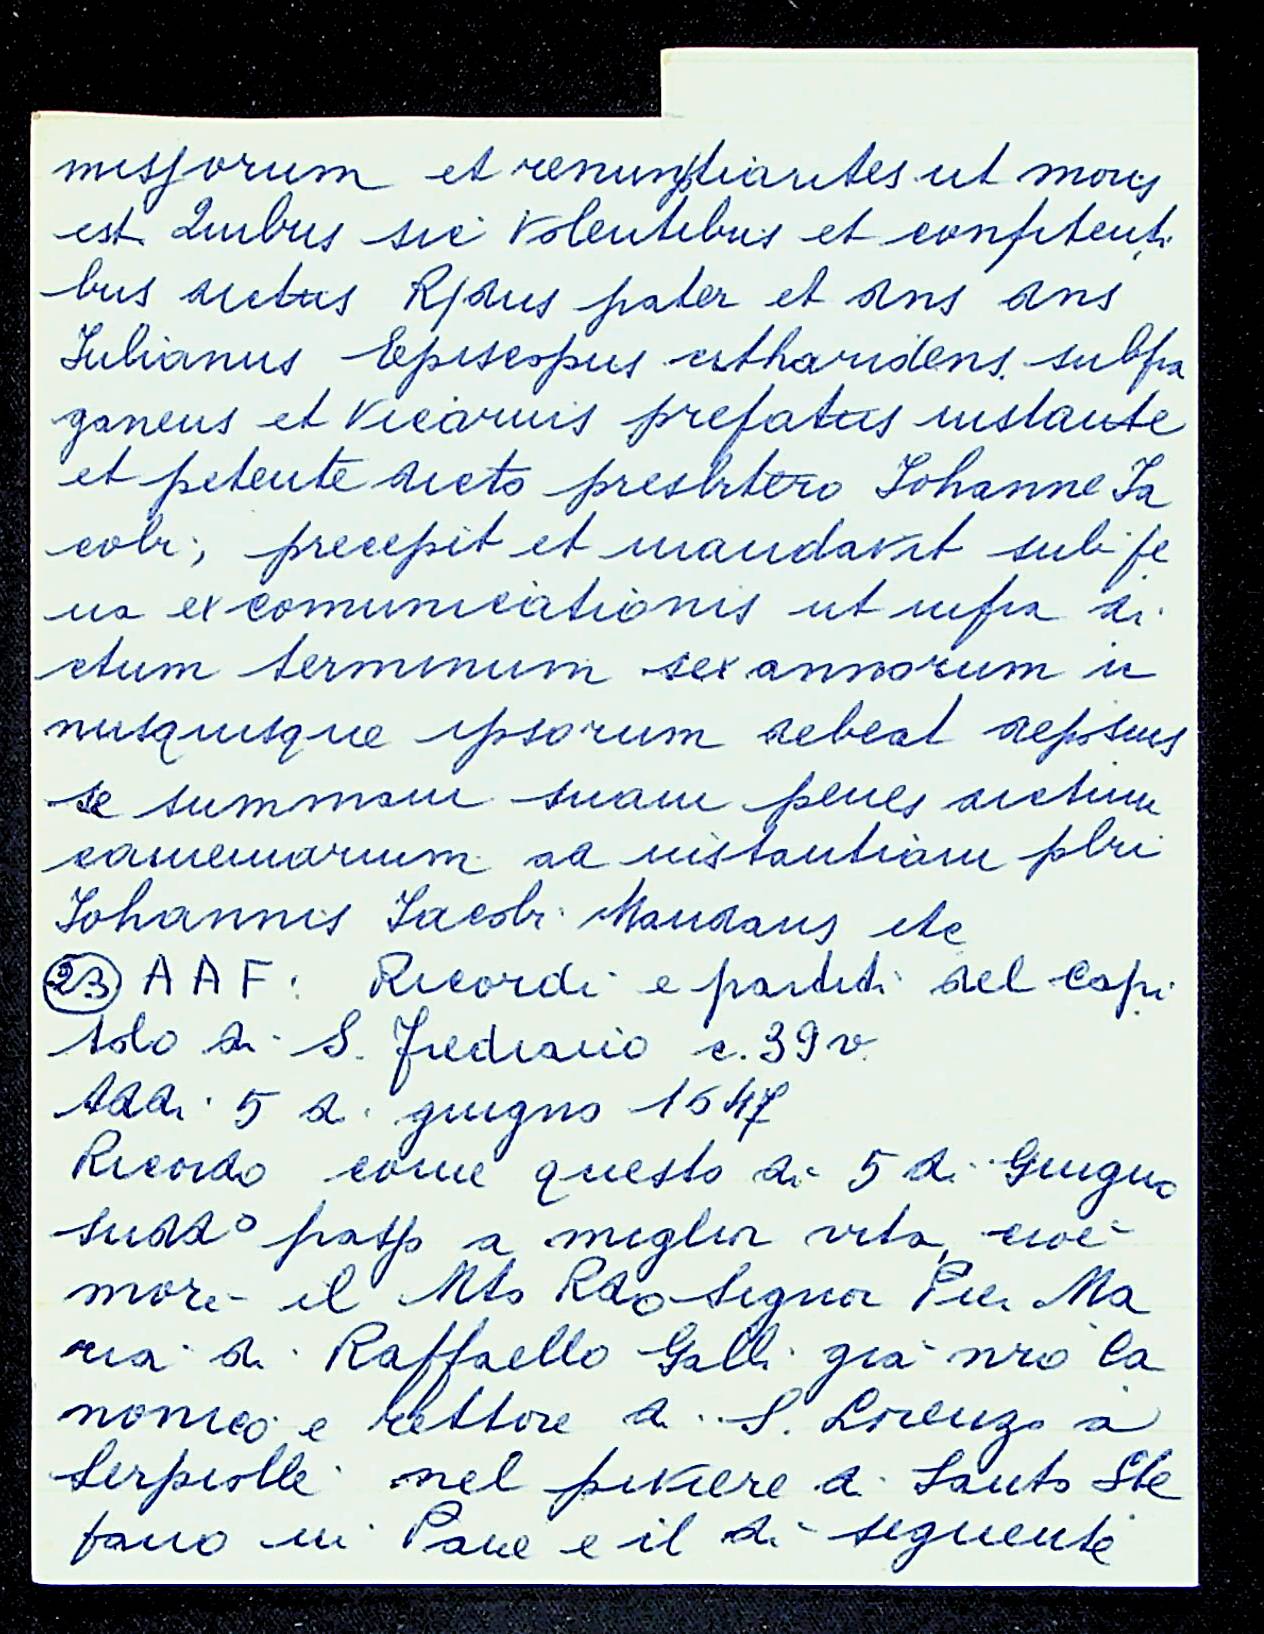 missorum et renuntiantes ut moris
est. Quibus sic volentibus et confitenti
bus dictus R/dus pater et dns dns
Iulianus Episcopus cthariđens. subfra
ganeus et vicarius prefatus instante
et petente dicto presbitero Iohanne Ia
cobi; precepit et mandavit sub pe
na excomunicationis ut infra di
ctum terminum sex annorum u
nusquisque ipsorum debeat depone
se summam suam penes dictum
camerarium ad instantiam pbri
Iohannis Iacobi Mandans etc
(23) AAF: Ricordi e partiti del Capi
tolo di S. Frediano c. 39 v.
Addi 5 di giugno 1647
Ricordo come questo dì 5 di Giugno
sudd° passò a miglior vita, cioè
morì il Mto Rdo Signor Pier Ma
ria di Raffaello Galli già nro Ca
nonico e rettore di S. Lorenzo a
Serpiolle nel piviere di Santo Ste
fano in Pane e il dì seguente